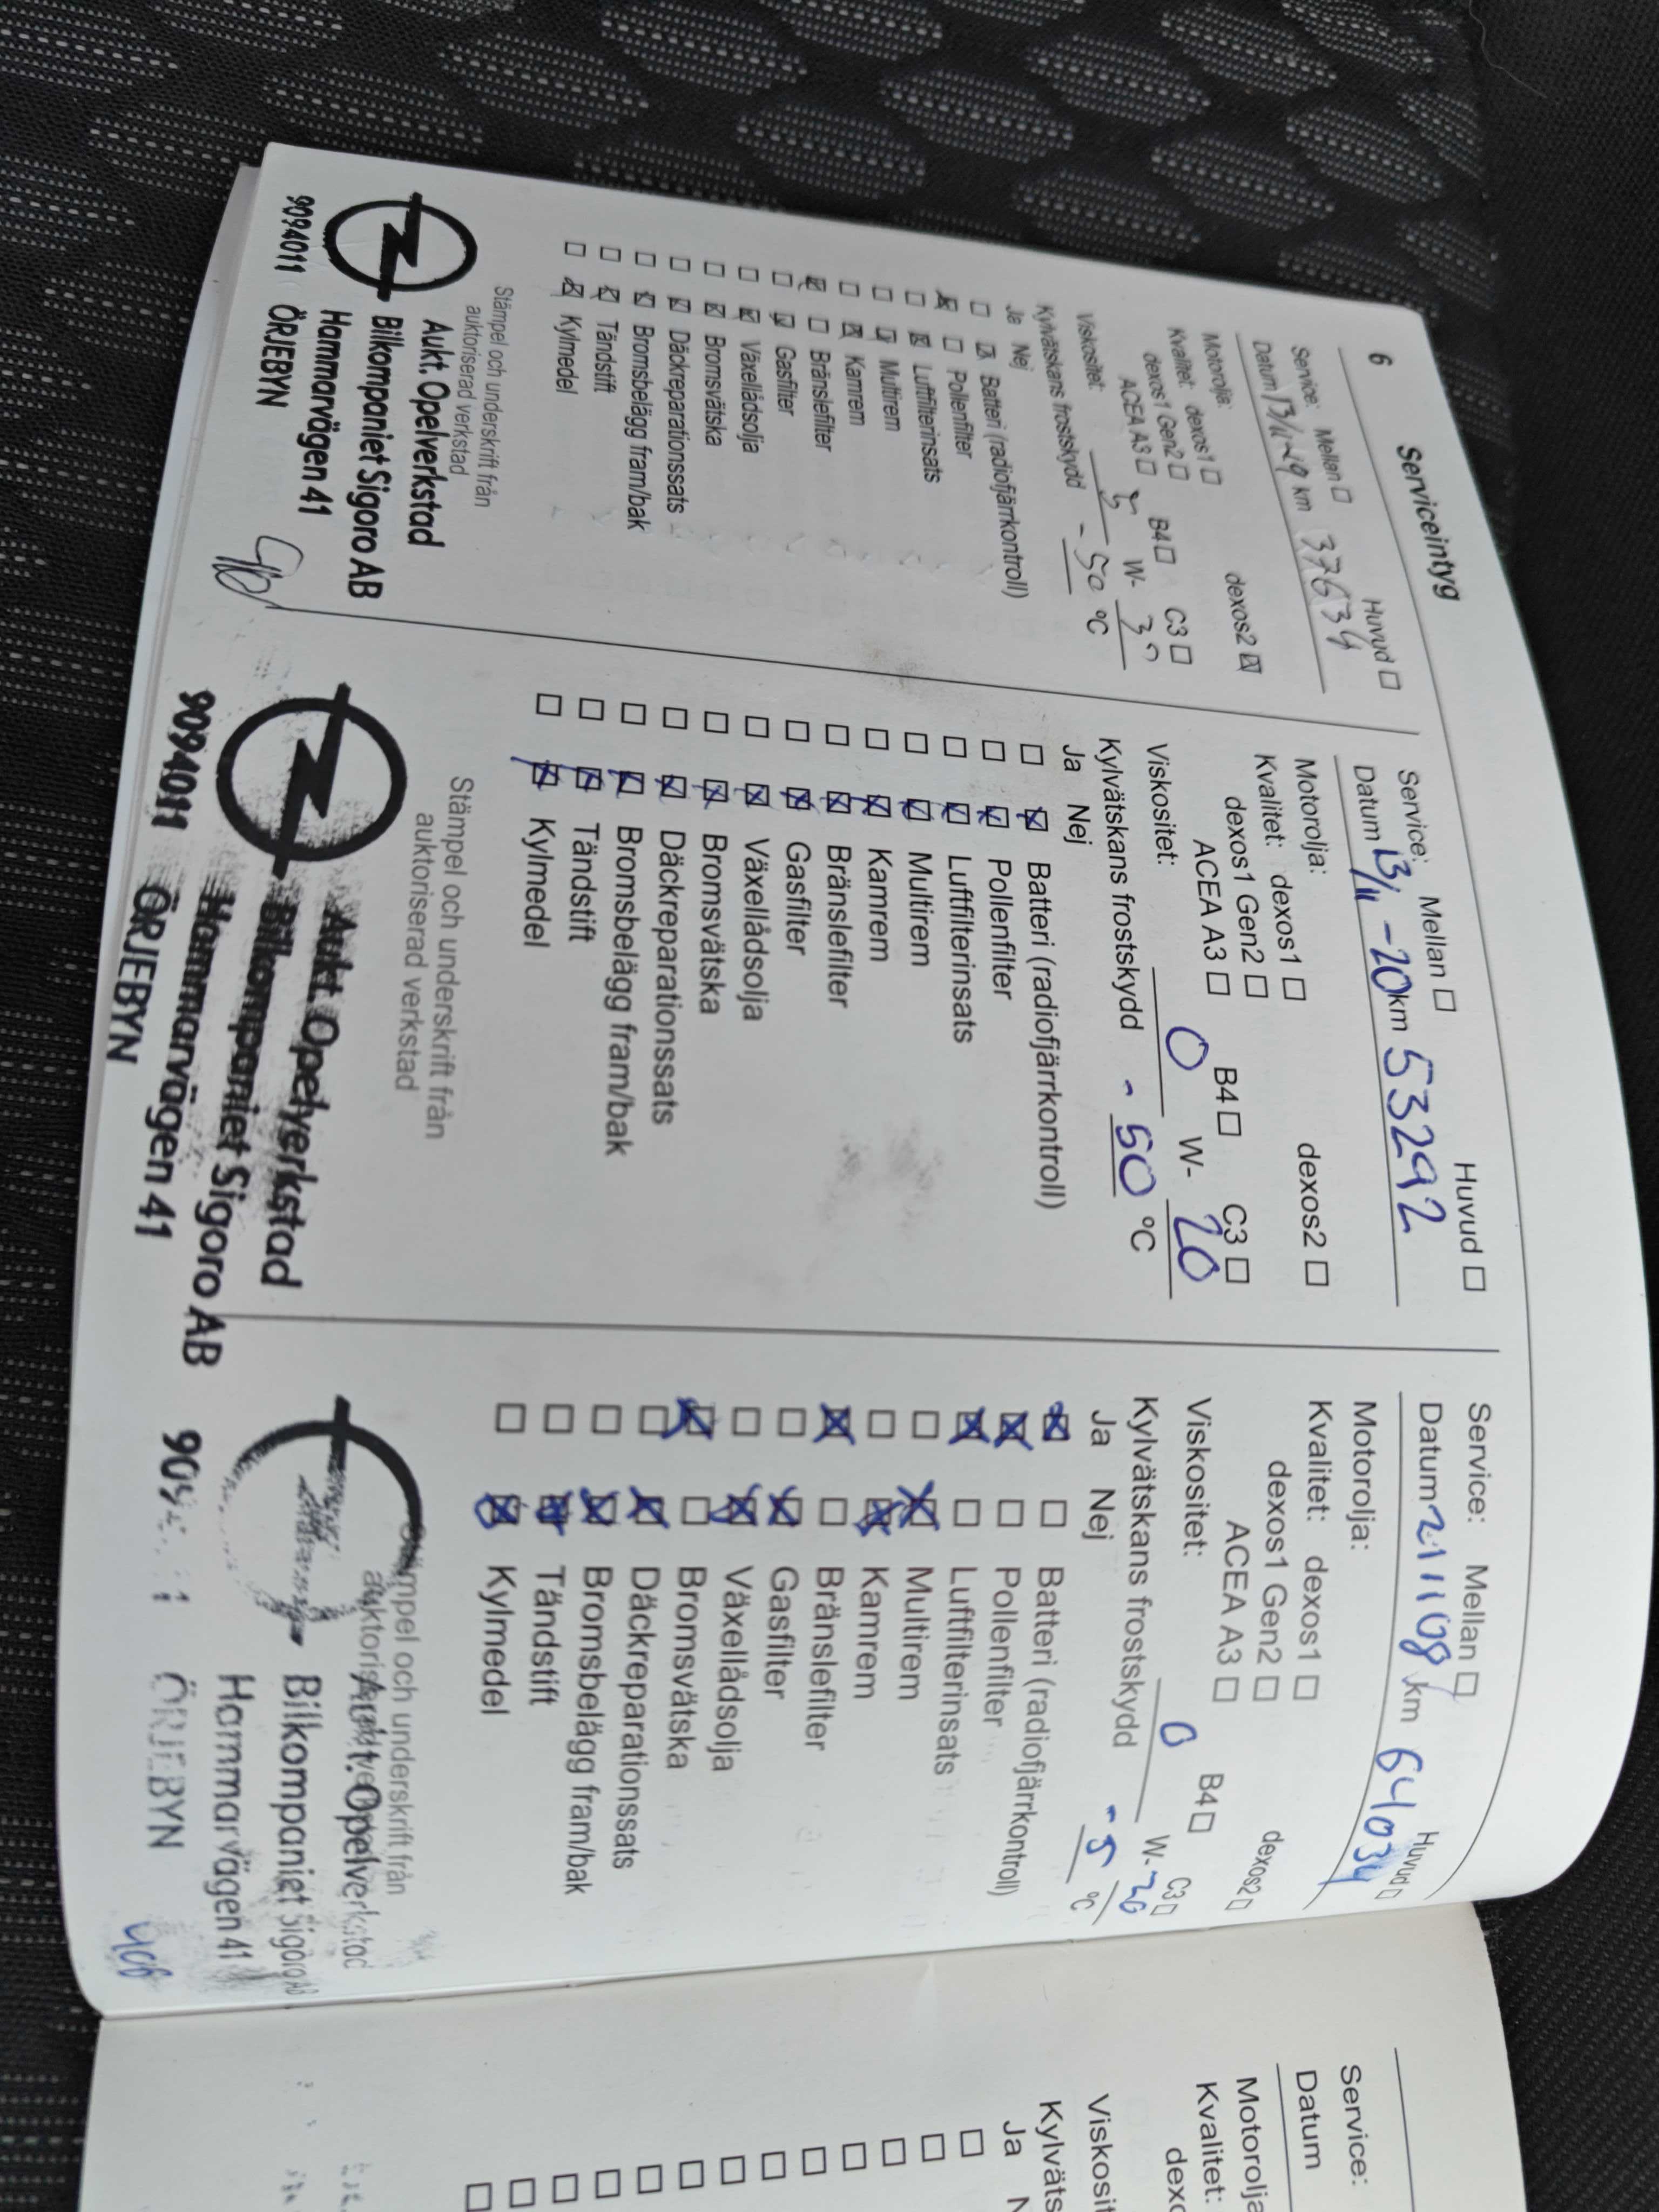 6
Serviceintyg
Service: Mellan ☐ Huvud ☐
Datum 13/11-19 km 37634
Motorolja:
Kvalitet: dexos1 ☐ dexos2 ☒
dexos1 Gen2 ☐
ACEA A3 ☐ B4 ☐ C3 ☐
Viskositet: 5 W- 30
Kylvätskans frostskydd - 50 °C
Ja Nej
☐ ☒ Batteri (radiofjärrkontroll)
☒ ☐ Pollenfilter
☐ ☒ Luftfilterinsats
☐ ☒ Multirem
☐ ☒ Kamrem
☒ ☐ Bränslefilter
☐ ☒ Gasfilter
☐ ☒ Växellådsolja
☐ ☒ Bromsvätska
☐ ☒ Däckreparationssats
☐ ☒ Bromsbelägg fram/bak
☐ ☒ Tändstift
☐ ☒ Kylmedel
Stämpel och underskrift från
auktoriserad verkstad
Aukt. Opelverkstad
Bilkompaniet Sigoro AB
Hammarvägen 41
9094011 ÖRJEBYN
Service: Mellan ☐ Huvud ☐
Datum 13/11-20 km 53292
Motorolja:
Kvalitet: dexos1 ☐ dexos2 ☐
dexos1 Gen2 ☐
ACEA A3 ☐ B4 ☐ C3 ☐
Viskositet: 0 W- 20
Kylvätskans frostskydd - 50 °C
Ja Nej
☐ ☒ Batteri (radiofjärrkontroll)
☐ ☒ Pollenfilter
☐ ☒ Luftfilterinsats
☐ ☒ Multirem
☐ ☒ Kamrem
☐ ☒ Bränslefilter
☐ ☒ Gasfilter
☐ ☒ Växellådsolja
☐ ☒ Bromsvätska
☐ ☒ Däckreparationssats
☐ ☒ Bromsbelägg fram/bak
☐ ☒ Tändstift
☐ ☒ Kylmedel
Stämpel och underskrift från
auktoriserad verkstad
Aukt. Opelverkstad
Bilkompaniet Sigoro AB
Hammarvägen 41
9094011 ÖRJEBYN
Service: Mellan ☐ Huvud ☐
Datum 211108 km 64034
Motorolja:
Kvalitet: dexos1 ☐ dexos2 ☐
dexos1 Gen2 ☐
ACEA A3 ☐ B4 ☐ C3 ☐
Viskositet: 0 W- 20
Kylvätskans frostskydd - 5 °C
Ja Nej
☒ ☐ Batteri (radiofjärrkontroll)
☒ ☐ Pollenfilter
☒ ☐ Luftfilterinsats
☐ ☒ Multirem
☐ ☒ Kamrem
☒ ☐ Bränslefilter
☐ ☒ Gasfilter
☐ ☒ Växellådsolja
☒ ☐ Bromsvätska
☐ ☒ Däckreparationssats
☐ ☒ Bromsbelägg fram/bak
☐ ☒ Tändstift
☐ ☒ Kylmedel
Stämpel och underskrift från
Aukt. Opelverkstad
Bilkompaniet Sigoro AB
Hammarvägen 41
ÖRJEBYN
Service:
Datum
Motorolja
Kvalitet:
Ja